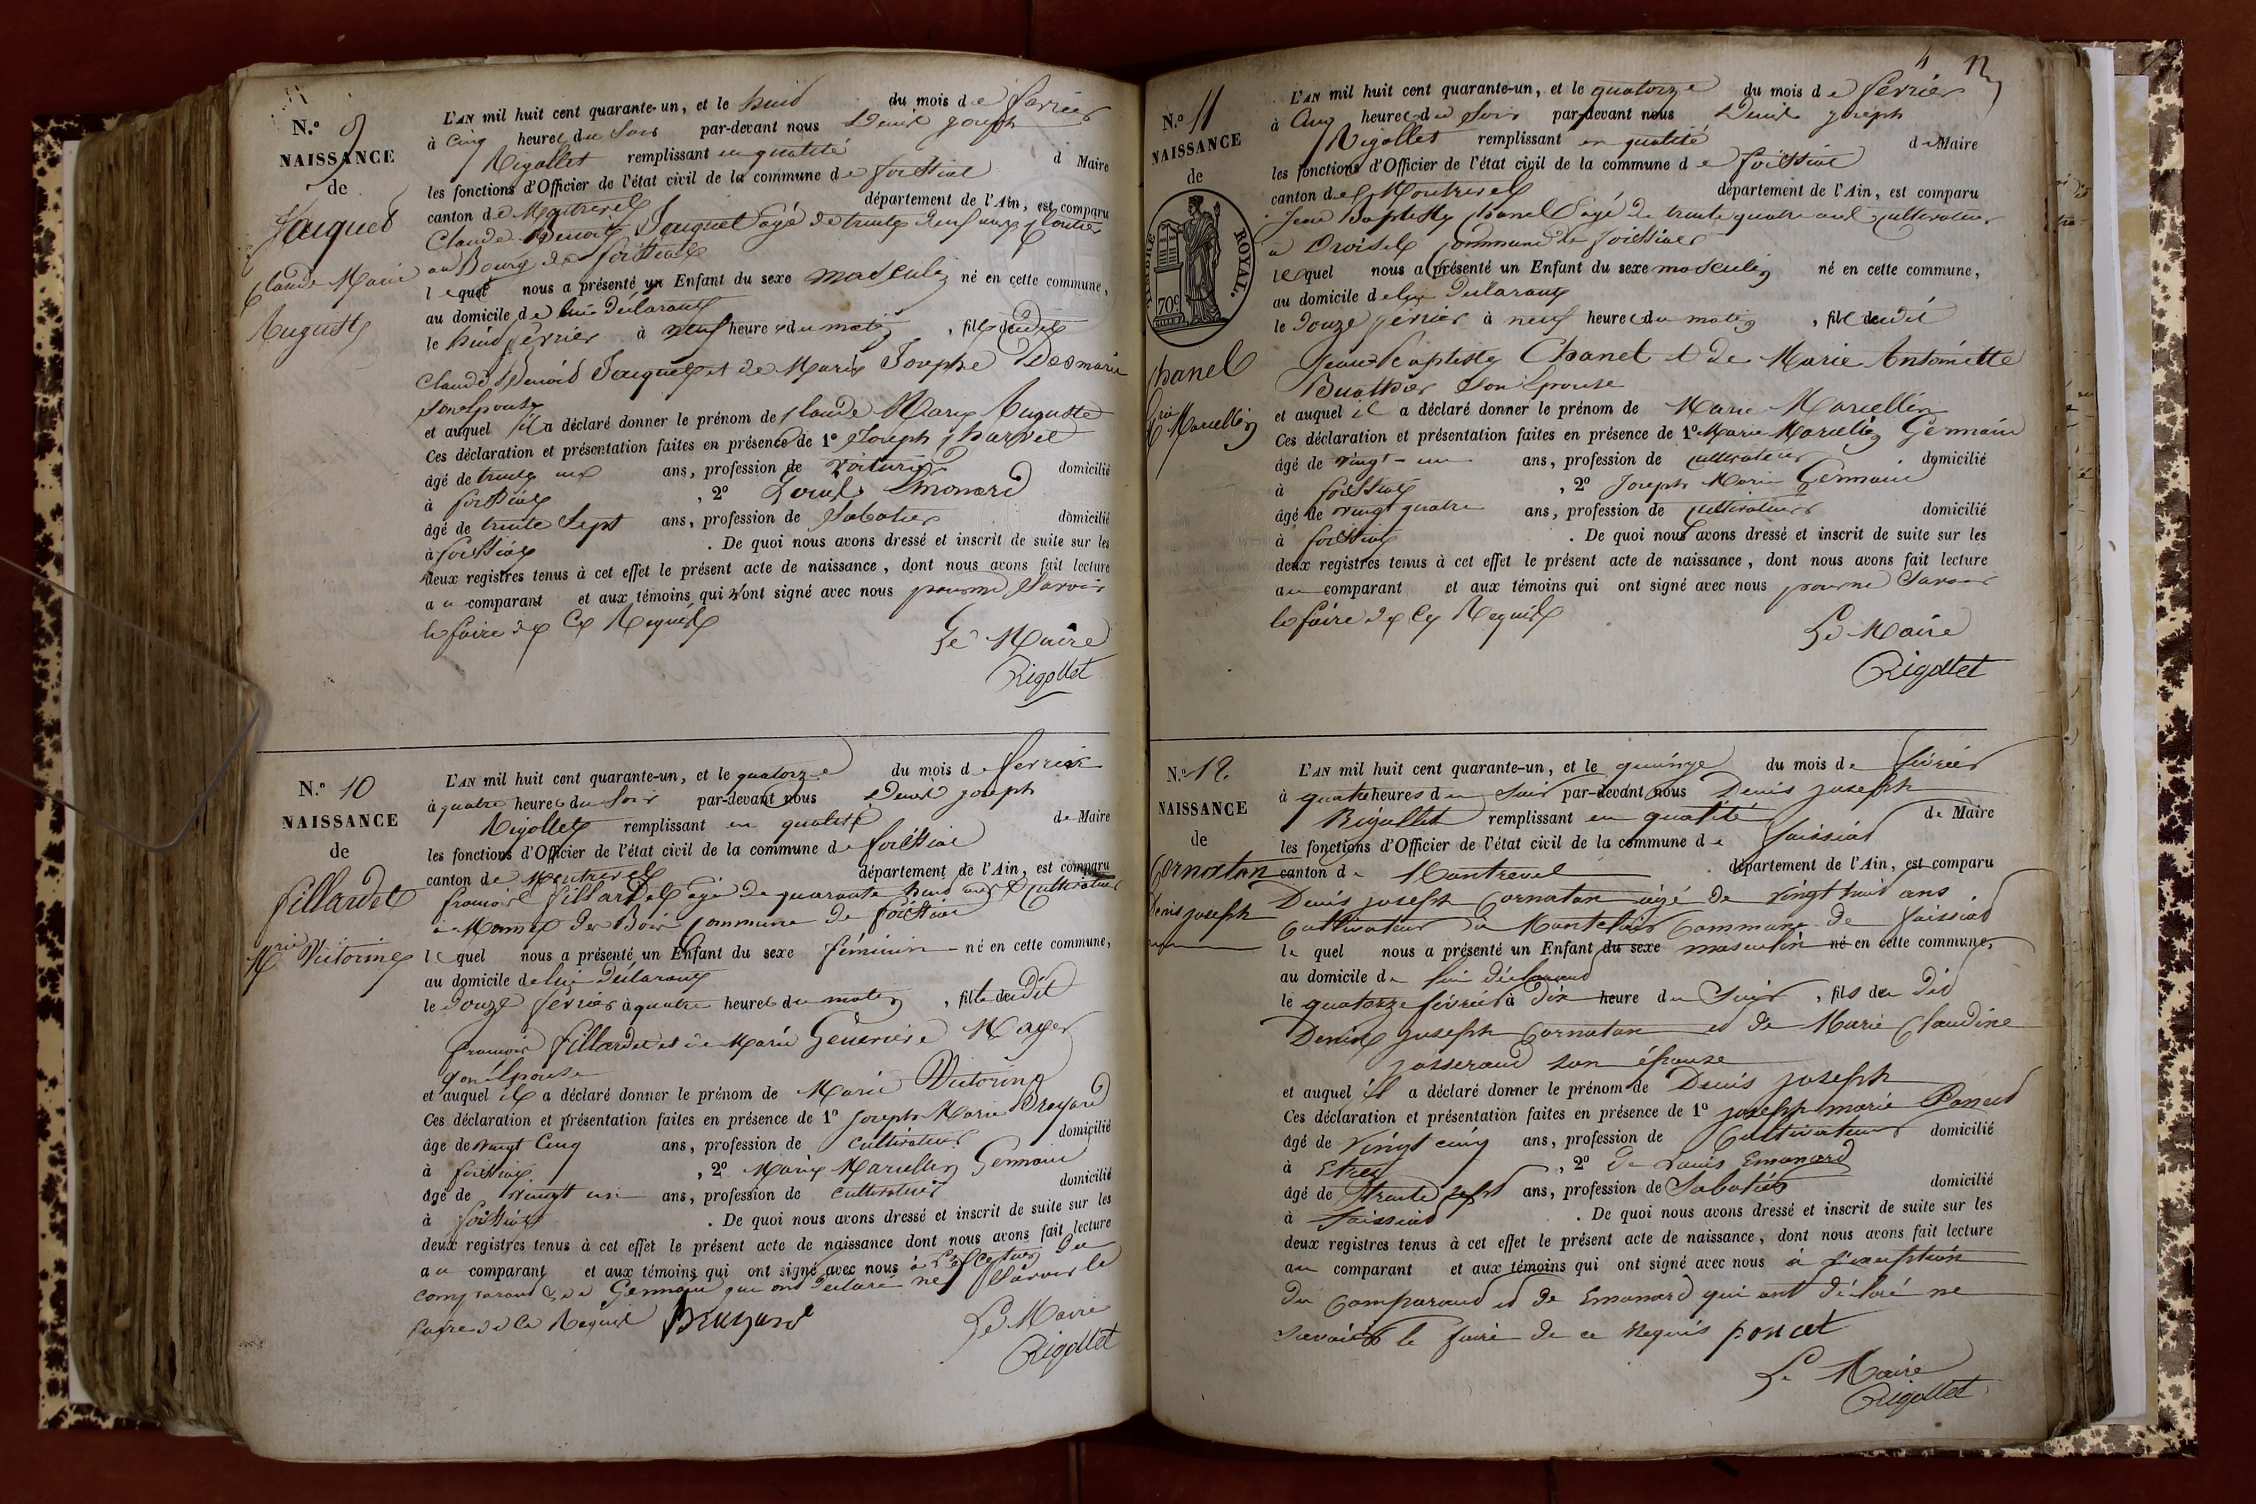 N.º 9
NAISSANCE
de
Jaquet
Claude Marie
Auguste
L'AN mil huit cent quarante-un, et le huit du mois de février
à cinq heures du soir par-devant nous Denis joseph
Rigollet remplissant en qualité de Maire
les fonctions d'Officier de l'état civil de la commune de foissiat
canton de Montrevel département de l'Ain, est comparu
Claude Benoit Jaquet âgé de trente neuf ans
au Bourg de foissiat
lequel nous a présenté un Enfant du sexe masculin né en cette commune,
au domicile de lui déclarant
le huit février à neuf heures du matin, fils dudit
Claude Benoit Jaquet et de Marie Josephe Desmaris
son épouse
et auquel il a déclaré donner le prénom de Claude Marie Auguste
Ces déclaration et présentation faites en présence de 1º Joseph
âgé de trente ans, profession de voiturier domicilié
à foissiat, 2º Louis Emonard
âgé de trente sept ans, profession de Sabotier domicilié
à foissiat. De quoi nous avons dressé et inscrit de suite sur les
deux registres tenus à cet effet le présent acte de naissance, dont nous avons fait lecture
au comparant et aux témoins qui n'ont signé avec nous pour ne Savoir
le faire de ce Requis
Le Maire
Rigollet
N.º 10
NAISSANCE
de
fillardet
Mrie Victorine
L'AN mil huit cent quarante-un, et le quatorze du mois de février
à quatre heures du soir par-devant nous Denis joseph
Rigollet remplissant en qualité de Maire
les fonctions d'Officier de l'état civil de la commune de foissiat
canton de Montrevel département de l'Ain, est comparu
françois fillardet âgé de quarante huit ans Cultivateur
à des Bois Commune de foissiat
lequel nous a présenté un Enfant du sexe féminin né en cette commune,
au domicile de lui déclarant
le douze février à quatre heures du matin, fille dudit
françois fillardet et de Marie Geneviève Mayer
son épouse
et auquel il a déclaré donner le prénom de Marie Victorine
Ces déclaration et présentation faites en présence de 1º joseph Marie Brayard
âgé de vingt cinq ans, profession de cultivateur domicilié
à foissiat, 2º Marie Marcellin Germain
âgé de vingt un ans, profession de cultivateur domicilié
à foissiat. De quoi nous avons dressé et inscrit de suite sur les
deux registres tenus à cet effet le présent acte de naissance dont nous avons fait lecture
au comparant et aux témoins qui ont signé avec nous à l'exception du
comparant et de Germain qui ont déclaré ne Savoir le
faire de ce Requis
Le Maire
Rigollet
4
N.º 11
NAISSANCE
de
ROYAL.
70c
Chanel
Mrie Marcellin
L'AN mil huit cent quarante-un, et le quatorze du mois de février
à cinq heures du soir par-devant nous Denis joseph
Rigollet remplissant en qualité de Maire
les fonctions d'Officier de l'état civil de la commune de foissiat
canton de Montrevel département de l'Ain, est comparu
Jean Baptiste Chanel âgé de trente quatre ans cultivateur
à commune de foissiat
lequel nous a présenté un Enfant du sexe masculin né en cette commune,
au domicile de lui déclarant
le douze février à neuf heures du matin, fils dudit
Jean Baptiste Chanel et de Marie Antoinette
Buathier son Epouse
et auquel il a déclaré donner le prénom de Marie Marcellin
Ces déclaration et présentation faites en présence de 1º Marie Marcellin Germain
âgé de vingt-un ans, profession de cultivateur domicilié
à foissiat, 2º Joseph Marie Germain
âgé de vingt quatre ans, profession de cultivateur domicilié
à foissiat. De quoi nous avons dressé et inscrit de suite sur les
deux registres tenus à cet effet le présent acte de naissance, dont nous avons fait lecture
au comparant et aux témoins qui ont signé avec nous pour ne Savoir
le faire de ce Requis
Le Maire
Rigollet
N.º 12.
NAISSANCE
de
Cornaton
Denis joseph
L'AN mil huit cent quarante-un, et le quinze du mois de février
à quatre heures du soir par-devant nous Denis joseph
Rigollet remplissant en qualité de Maire
les fonctions d'Officier de l'état civil de la commune de foissiat
canton de Montrevel département de l'Ain, est comparu
Denis joseph Cornaton âgé de vingt huit ans
Cultivateur commune de foissiat
le quel nous a présenté un Enfant du sexe masculin né en cette commune,
au domicile de lui déclarant
le quatorze février à dix heure du soir, fils de dit
Denis joseph Cornaton et de Marie Claudine
josserand son épouse
et auquel il a déclaré donner le prénom de Denis joseph
Ces déclaration et présentation faites en présence de 1º joseph marie Poncet
âgé de vingt cinq ans, profession de Cultivateur domicilié
à Etrez, 2º de Louis Emonard
âgé de trente sept ans, profession de Sabotier domicilié
à foissiat. De quoi nous avons dressé et inscrit de suite sur les
deux registres tenus à cet effet le présent acte de naissance, dont nous avons fait lecture
au comparant et aux témoins qui ont signé avec nous à l'exception
du Comparand et de Emonard qui ont déclaré ne
savoir le faire de ce Requis poncet
Le Maire
Rigollet